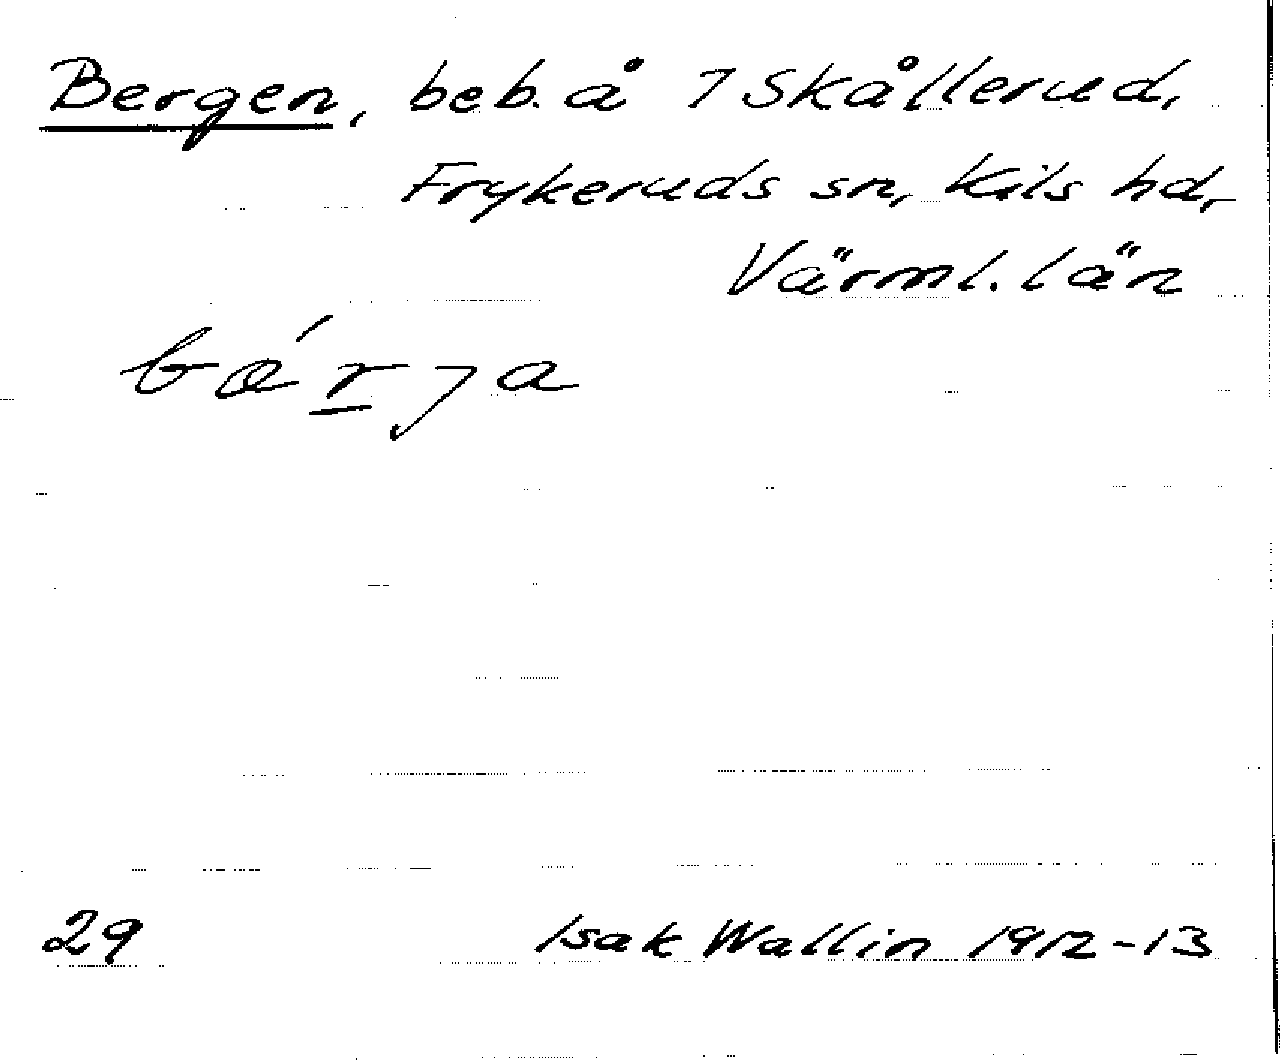 Bergen, beb. å 7 Skållerud,
Frykeruds sn, Kils hd,
Värml. län
bá̵rja
29 Isak Wallin 1912-13